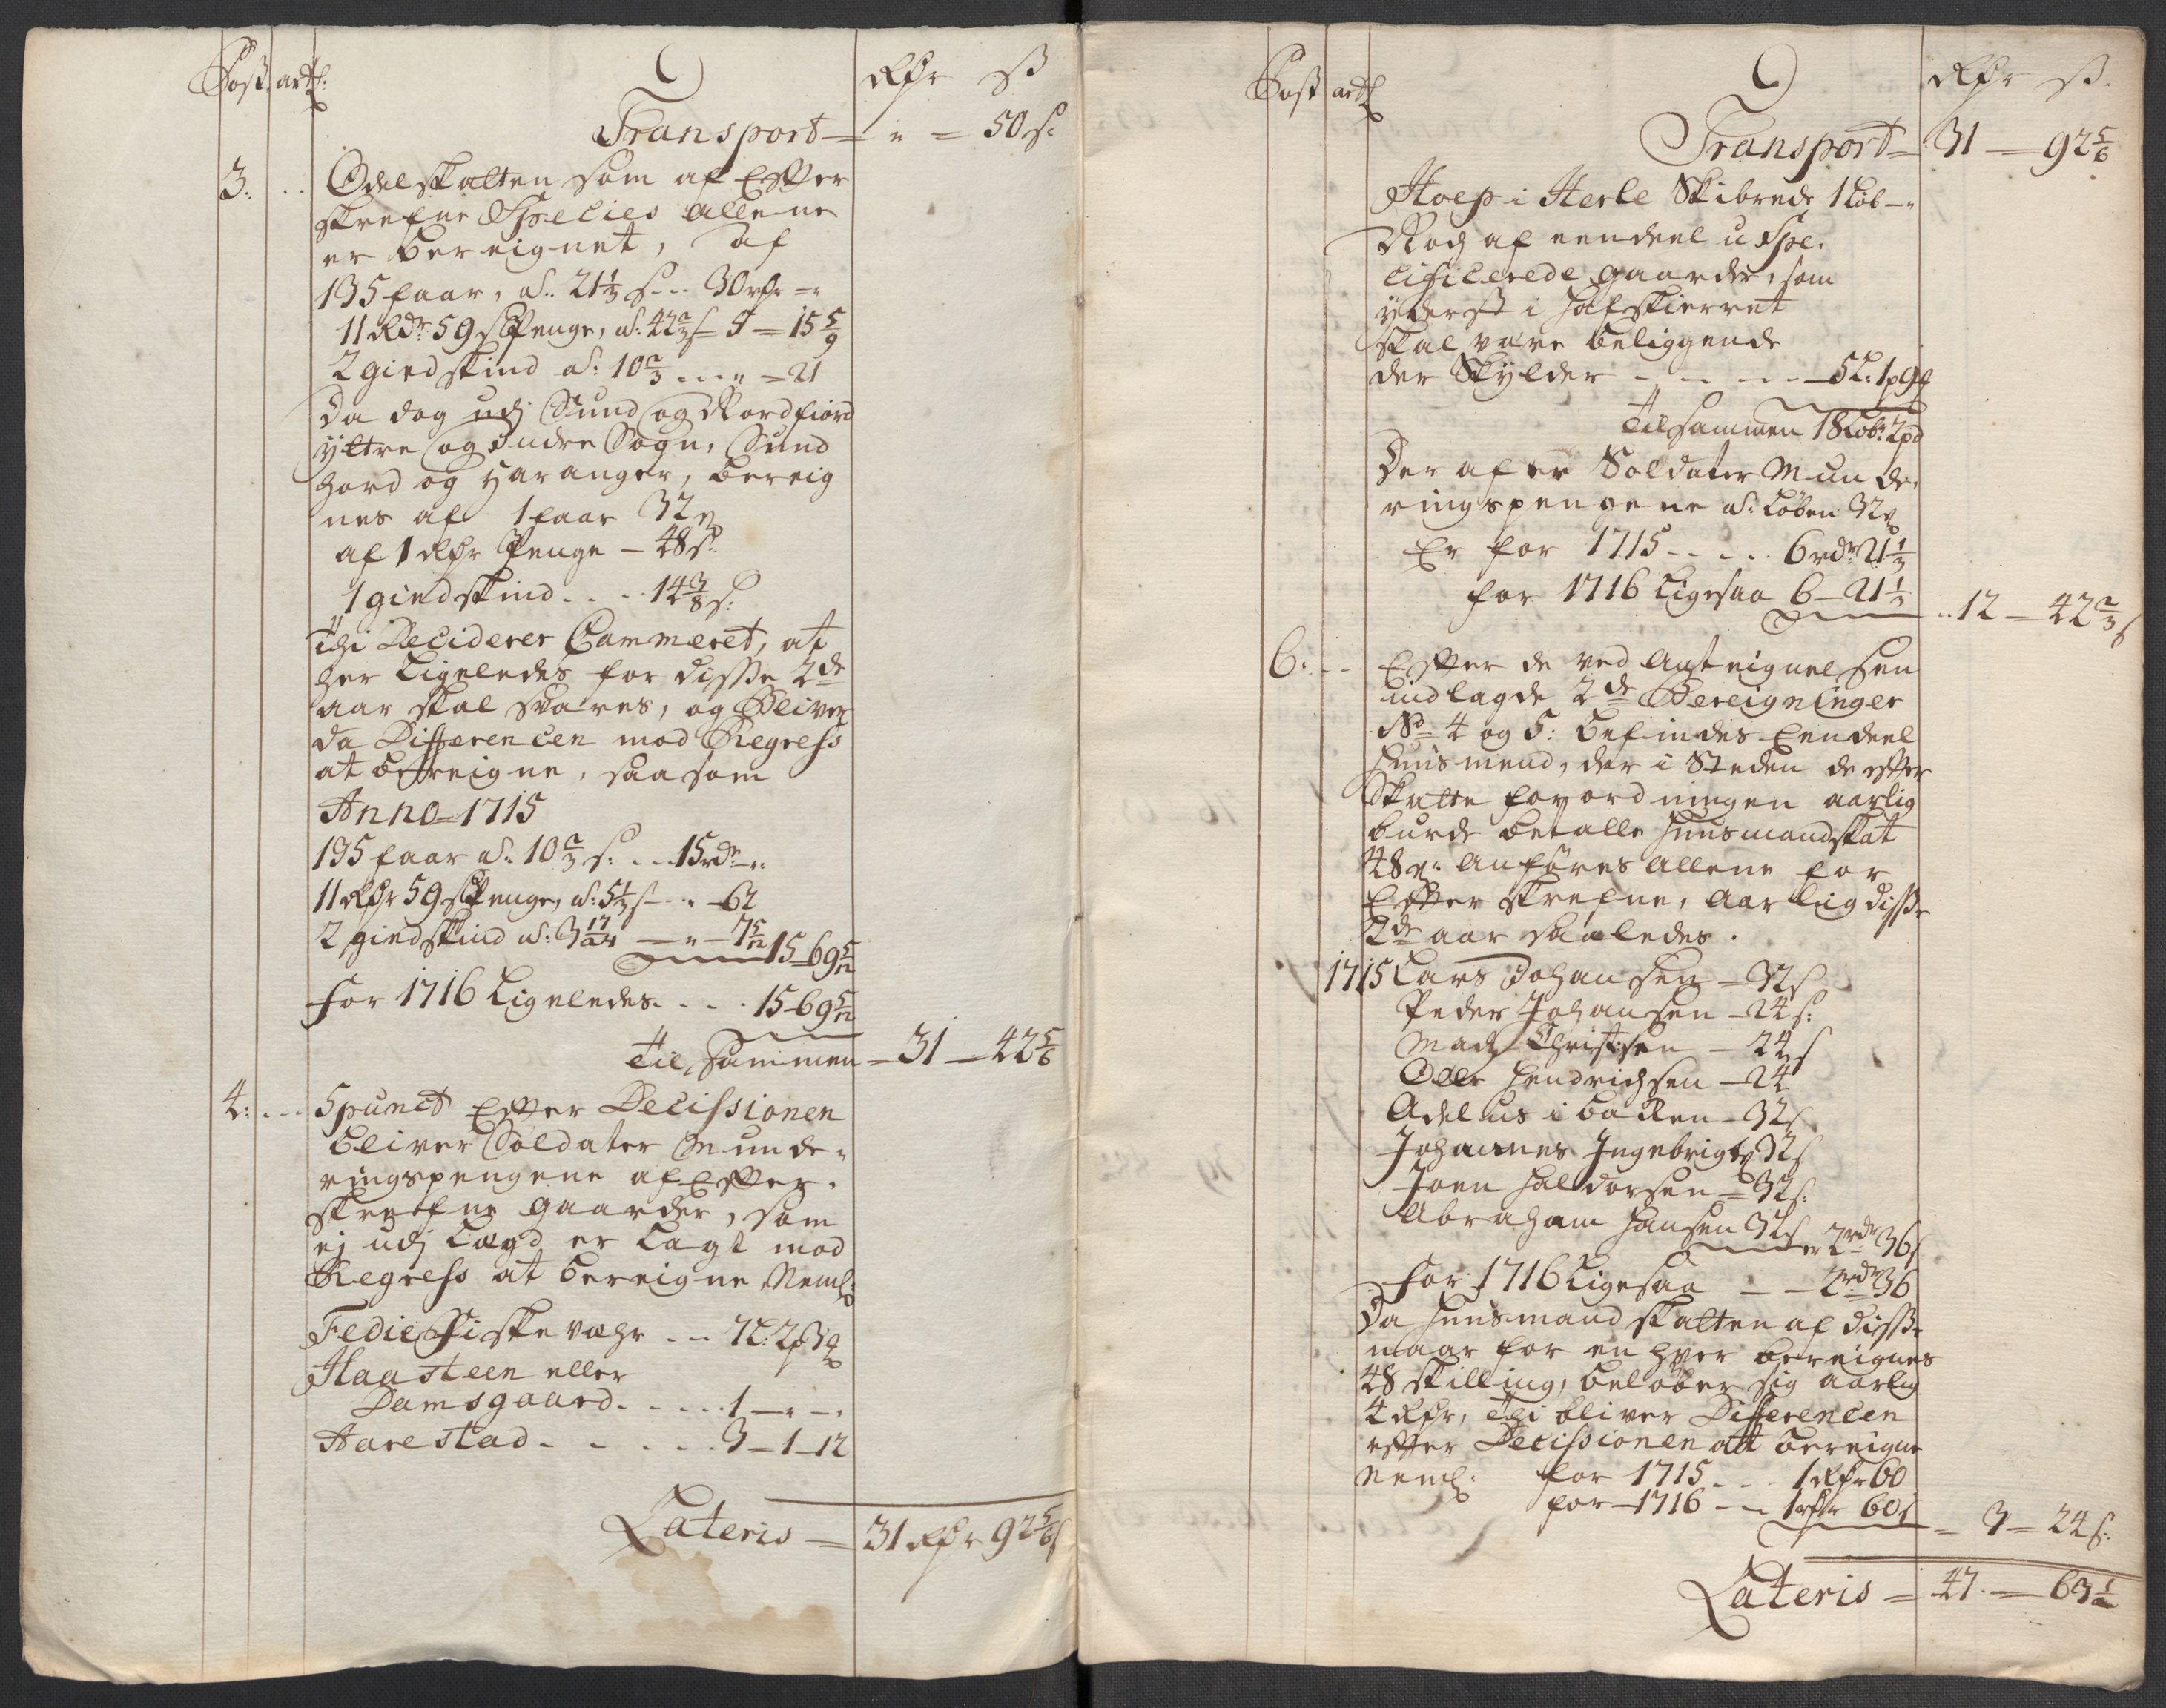 Post artl: Rdr ss
Transport — " = 50 s:
3. Odelskatten som af Efter
skrefne Species allene
er bereignet, af
135 faar, a.. 21 1/3 s... 30 rdr - "
11 Rdr 59 s Penge, a: 42 2/3 s - 5 - 15 5/9
2 giedskind a: 10 2/3 ... " = 21
Da dog udj Sund og Nordfiord
yttre og Indre Sogn, Sund
hord og Haranger, bereig
nes af 1 faar 32 s
af 1 Rdr Penge - 48 s:
1 giedskind ... 14 3/8 s:
Thi Deciderer Cammeret, at
her Ligeledes for disse 2de
aar skal svares, og Bliver
da Differencen mod Regress
at bereigne, saasom
Anno 1715
135 faar a: 10 2/3 s: .. 15 rdr - "
11 Rdr 59 s Penge, a: 5 1/3 s - .. " - 62
2 giedskind a: 3 17/24 — " — 7 5/12
15 - 69 5/12
for 1716 Ligeledes ... 15 - 69 5/12
Tilsammen = 31 — 42 5/6
4: ... 5 punct Efter Decissionen
bliver Soldater Munde-
ringspengene af Efter-
skrefne gaarder, som
ej udj Lægd er Lagt mod
Regress at bereigne Neml:
Fedie Fiskevæhr ... 7L: 2p 3q
Haasteen eller
Damsgaard ..... 1 — " — "
Harestad ...... 3 — 1 — 12
Lateris = 31 Rdr 92 5/6 s
Post artl Rdr ss.
Transport = 31 — 92 5/6
Hoep i Herle Skibrede 1 Løb — "
Noch af een deel u Spe-
cificerede gaarder, som
yderst i Hafskierret
skal være beliggende
der Skylder - - - - - 5L: 1p 9q
Tilsammen 18 Løb: 2pd
Der af er Soldater Munde-
ringspengene a: Løben 32 s
Er for 1715 .... 6 rdr 21 1/3
for 1716 Ligesaa 6 - 21 1/3
.. 12 — 42 2/3 s
6: - - Efter de ved Antegnelsen
indlagde 2de Bereigninger
No 4 og 5: befindes Eendeel
Huusmend, der i Steden de efter
Skatte forordningen aarlig
burde betalle Huusmandskat
48 s: anføres allene for
Efterskrefne, aarlig disse
2de aar saaledes.
1715 Lars Johansen - 32 s
Peder Johansen - 24 s:
Mads Christsen - 24 s
Olle Hendrichsen - 24
Adelus i backen - 32 s
Johannes Ingebrigts 32 s
Joen Haldorsen = 32 s:
Abraham Hansen 32 s
er 2 rdr 36 s
for 1716 Ligesaa — — 2 rdr 36
Da Huusmandskatten af disse
naar for en hver bereignes
48 skilling, beløber sig aarlig
4 Rdr, Thi bliver Differencen
efter Decissionen att bereigne
Neml: for 1715 ... 1 Rdr 60
for 1716 - - 1 rdr 60 s
= 3 = 24 s:
Lateris = 47 — 63 1/2